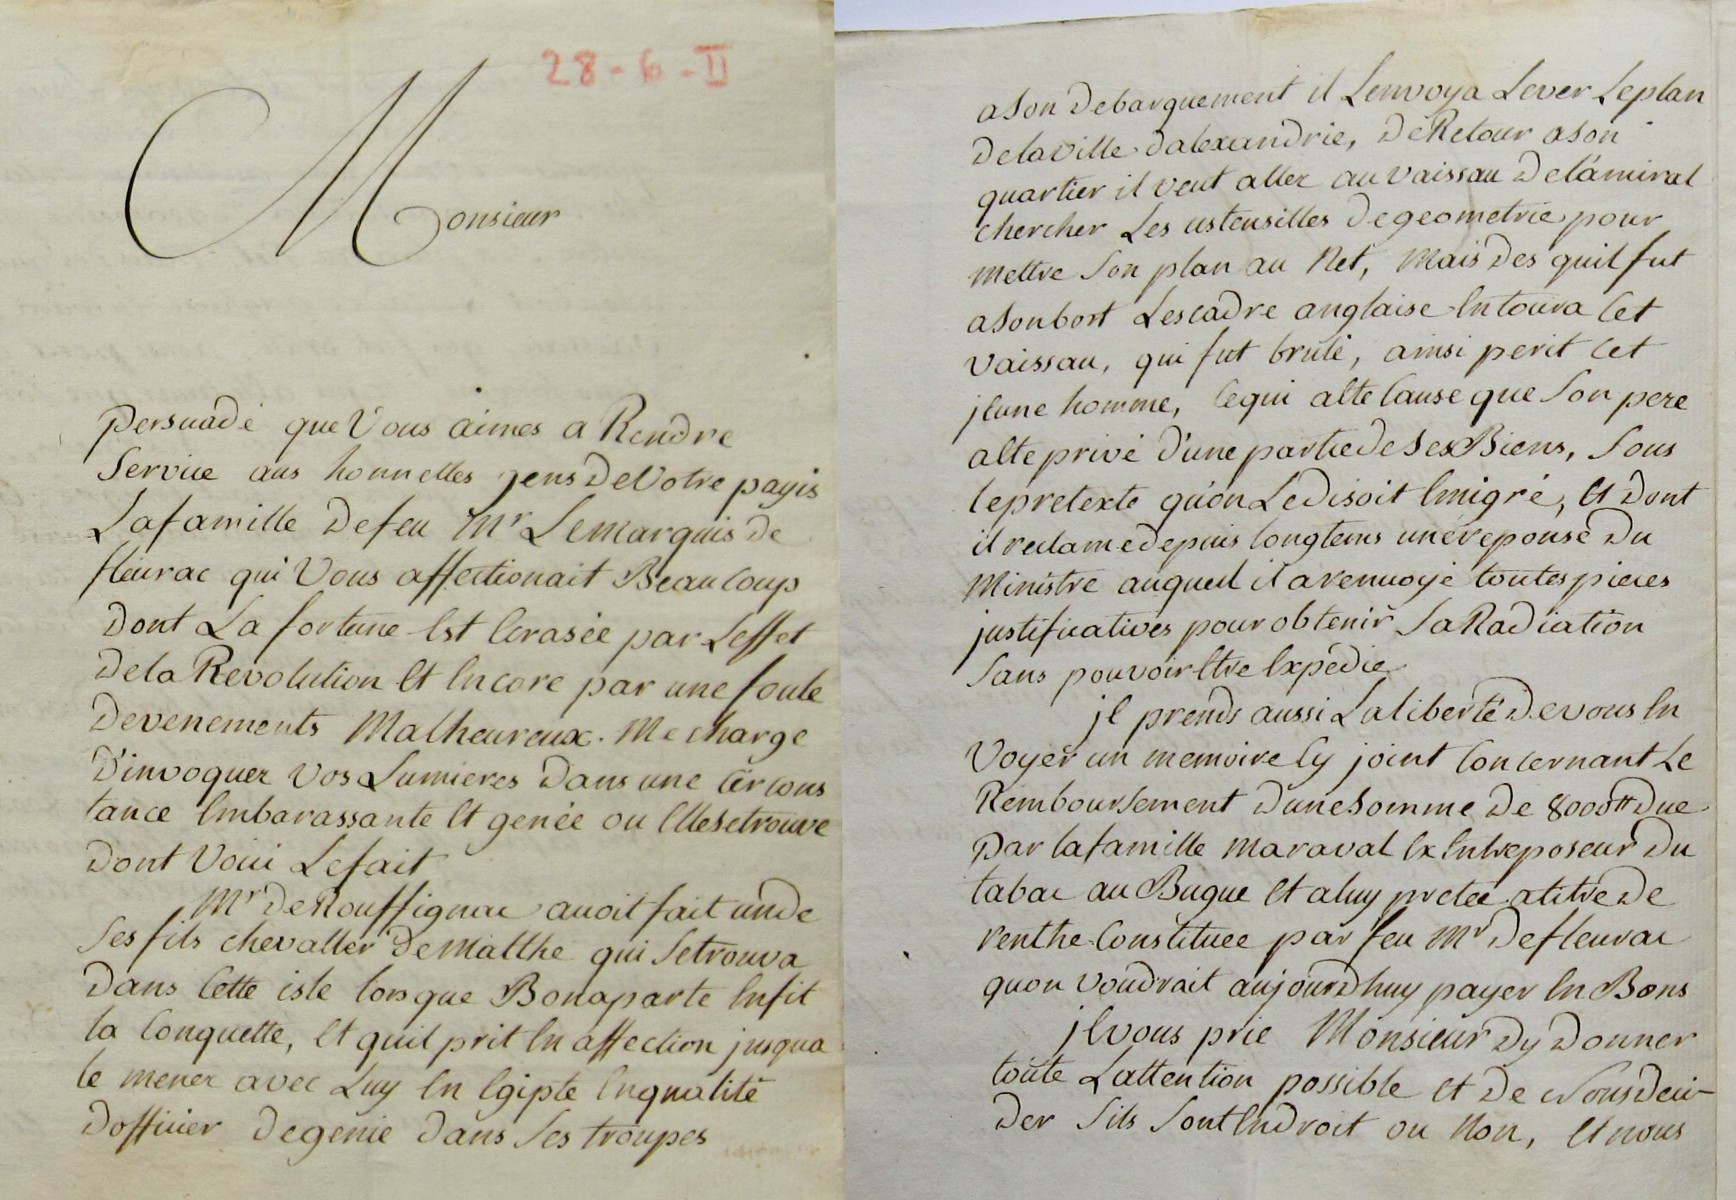 28-6-II
Monsieur
persuadé que Vous aimes a Rendre
Service aus honnettes gens De Votre payis
La famille Defeu Mr Le Marquis de
fleurac qui Vous affectionait Beaucoup
Dont La fortune Est Ecrasée par Leffet
De la Revolution Et Encore par une foule
Devenements Malheureux. Me charge
D'invoquer Vos Lumieres Dans une Circons
tance Embarassante Et genée ou Elle se trouve
Dont Voici Le fait
Mr De Rouffignac avoit fait un de
Ses fils chevallier De Malthe qui Se trouva
Dans Cette isle lorsque Bonaparte En fit
la Conquette, Et quil prit En affection jusqua
le mener avec Luy En Egipte En qualité
Dofficier De genie Dans Ses troupes
a Son Debarquement il Lenvoya Lever Le plan
De la Ville Dalexandrie, De Retour a Son
quartier il veut aller au Vaissau De l'amiral
chercher Les ustensilles De geometrie pour
mettre Son plan au Net, Mais Des quil fut
a Son bort Lescadre anglaise Entoura Cet
Vaissau, qui fut brulé, ainsi perit Cet
jeune homme, Ce qui a Ete Cause que Son pere
a Ete privé D'une partie de Ses Biens, Sous
le pretexte qu'on Le Disoit Emigré, Et Dont
il reclame depuis longtems une reponse Du
Ministre auqueil il a renvoyé toutes pieces
justificatives pour obtenir Sa Radiation
Sans pouvoir Etre Expedie
jl prends aussi La liberté De vous En
Voyer un memoire Cy joint Concernant Le
Remboursement D'une Somme De 8000tt Due
par la famille Maraval Ex Entreposeur Du
tabac au Bugue Et a luy pretée a titre De
renthe Constituée par feu Mr De fleurac
quon Voudrait aujourdhuy payer En Bons
jl vous prie Monsieur Dy Donner
toute Lattention possible Et De Nous Deci-
Der Sils Sont En Droit ou Non, Et nous